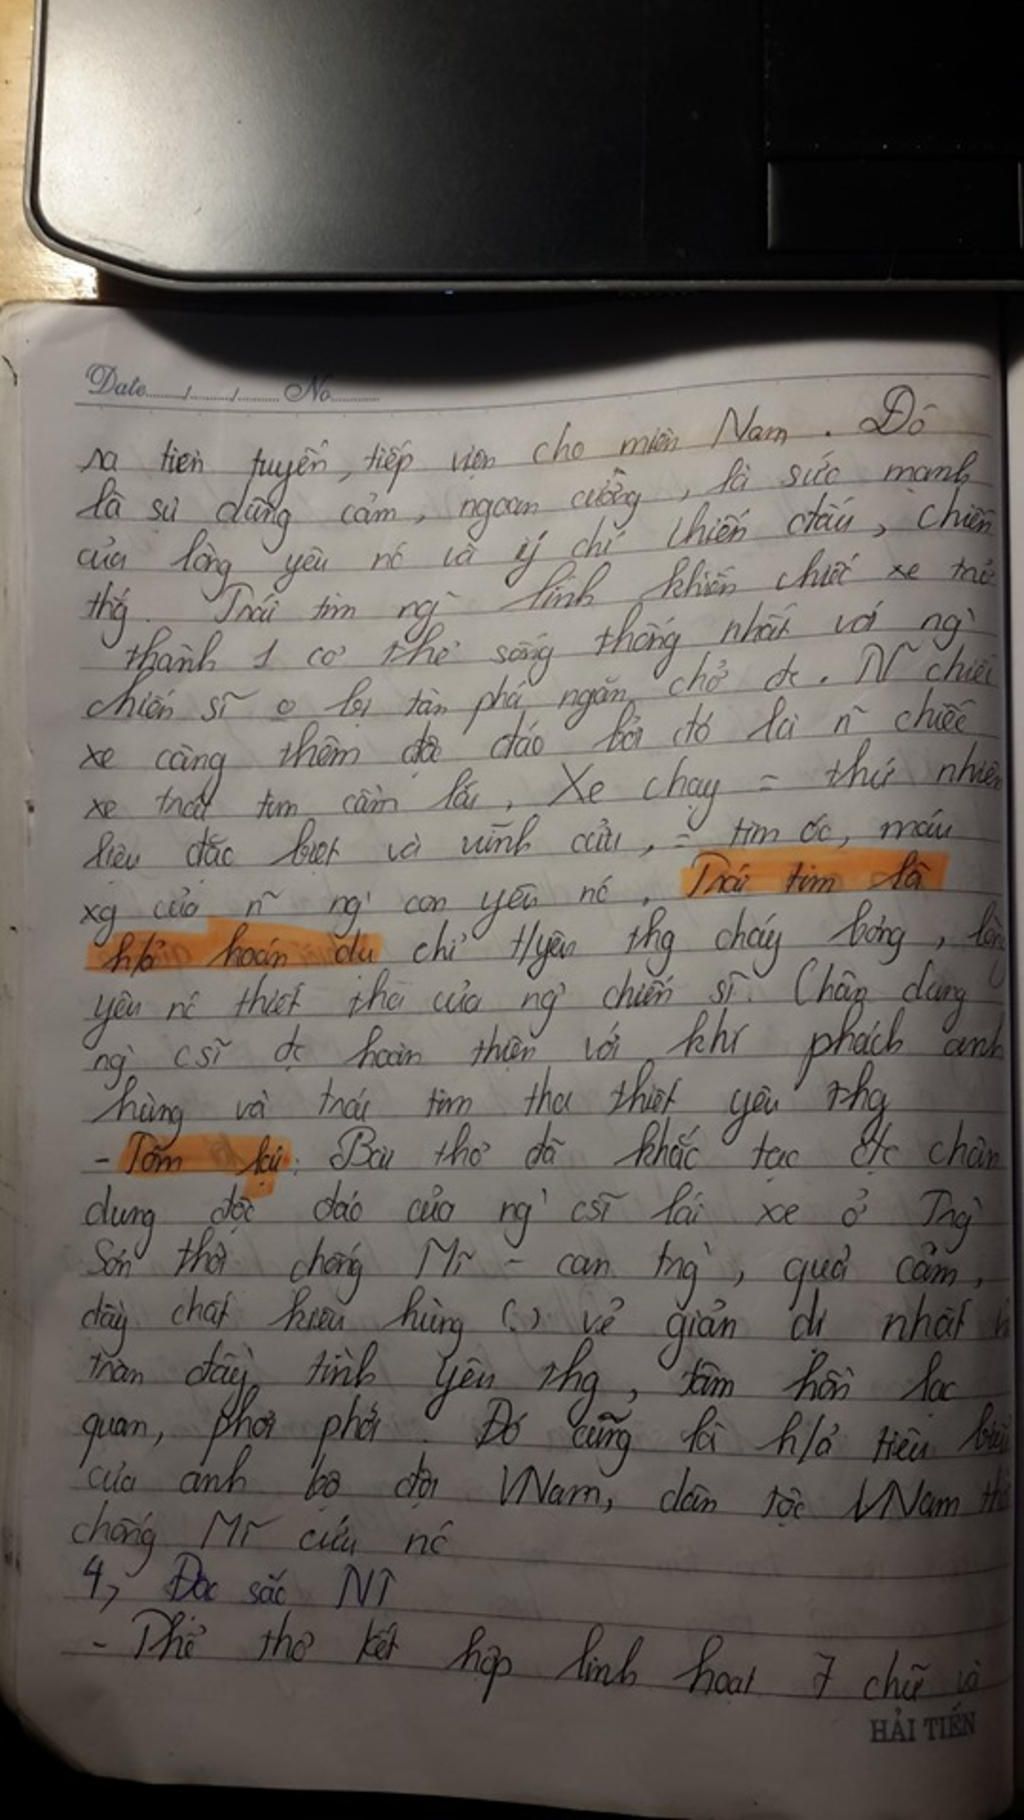 Date....../....../...... No.........
ra tiền tuyến, tiếp viện cho miền Nam. Đó
là sự dũng cảm, ngoan cường, là sức mạnh
của lòng yêu nc và ý chí chiến đấu, chiến
thg. Trái tim ng` lính khiến chiếc xe trở
thành 1 cơ thể sống thống nhất với ng`
chiến sĩ o tàn phá ngăn chở đc. N~ chiếc
xe càng thêm độc đáo bởi đó là n~ chiếc
xe trái tim cầm lái. Xe chạy = thứ nhiên
liệu đặc biệt và vĩnh cửu, = tim óc, máu
xg của n~ ng` con yêu nc. Trái tim là
h/ả hoán dụ chỉ t/yêu thg cháy bỏng, lòng
yêu nc thiết tha của ng` chiến sĩ. Chân dung
ng` csĩ đc hoàn thiện với khí phách anh
hùng và trái tim tha thiết yêu thg
- Tóm lại: Bài thơ đã khắc tạc đc chân
dung độc đáo của ng` csĩ lái xe ở Trg`
Sơn thời chống Mĩ - can trg`, quả cảm,
đầy chất kiêu hùng (.) vẻ giản dị nhất
tràn đầy tình yêu thg, tâm hồn lạc
quan, phơi phới. Đó cũng là h/ả tiêu biểu
của anh bộ đội VNam, dân tộc VNam
chống Mĩ cứu nc
4, Đặc sắc NT
- Thể thơ kết hợp linh hoạt 7 chữ và
HẢI TIẾN